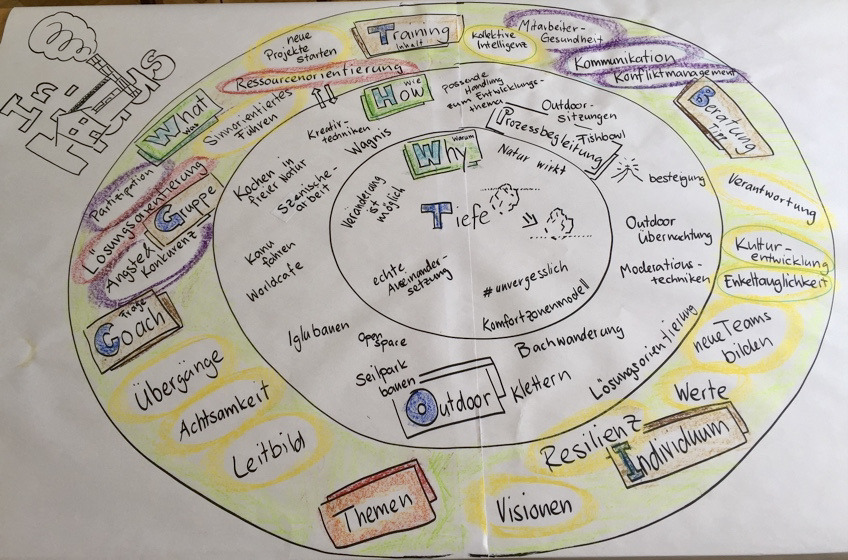 neue
Projekte
starten
Training
Inhalt
Kollektive
Intelligenz
Mitarbeiter-
Gesundheit
Kommunikation
Konfliktmanagement
Ressourcenorientierung
What
Was
Sinnorientiertes
Führen
How
wie
Passende
Handlung
zum Entwicklungs-
thema
Beratung
Outdoor-
sitzungen
Prozessbegleitung
Fishbowl
Kreativ-
techniken
Wagnis
Why
Warum
Natur wirkt
besteigung
Verantwortung
Participation
Lösungsorientierung
Gruppe
Angst
Konkurenz
Kochen in
freier Natur
Szenische-
arbeit
Veränderung
ist
möglich
Tiefe
Outdoor
Übernachtung
Kultur-
entwicklung
Enkeltauglichkeit
Kanu
fahren
Worldcafe
echte
Auseinander-
setzung
#unvergesslich
Komfortzonenmodell
Moderations-
techniken
Coach
Frage
Iglubauen
Open
Space
Seilpark
bauen
Bachwanderung
Klettern
Outdoor
Lösungsorientierung
neue Teams
bilden
Werte
Übergänge
Achtsamkeit
Leitbild
Resilienz
Individuum
Themen
Visionen